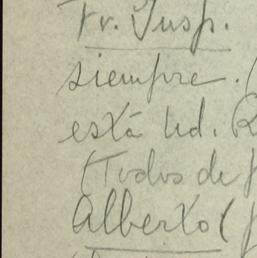 Fr. Insp.
siempre. (
está Ud. R
(Todos de p
Alberto (